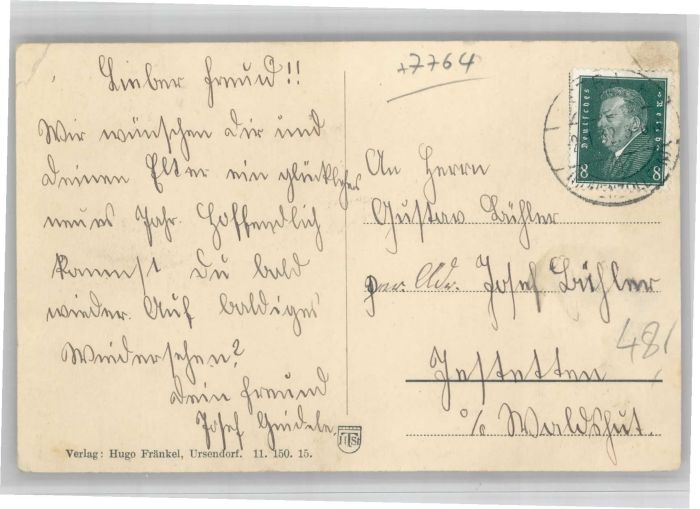 Lieber Freund!!
Wir wünschen Dir und
Deinen Elter ein glückliches
neues Jahr. Hoffendlich
kannst Du bald
wieder. Auf baldiges
Wiedersehen?
Dein Freund
Josef
Verlag: Hugo Fränkel, Ursendorf. 11. 150. 15.
+7764
Deutsches Reich
8 8
An Herrn
Gustav Bühler
per. Adr. Josef Bühler
481
Jestetten
o/o Waldshut.